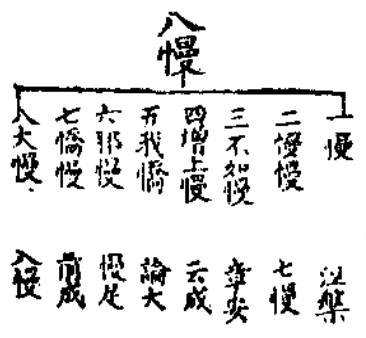 八慢
一慢
二慢慢
三不如慢
四增上慢
五我憍
六邪慢
七憍慢
八大慢
涅槃
七慢
章安
云成
論大
慢足
前成
八慢